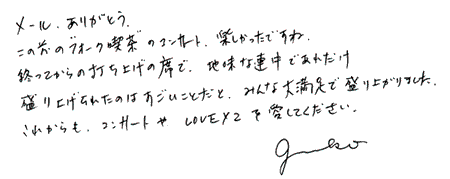 メール、ありがとう。
この前のフォーク喫茶のコンサート、楽しかったですね。
終ってからの打ち上げの席で、地味な連中であれだけ
盛り上げられたのはすごいことだと、みんな大満足で盛り上がりました。
これからも、コンサートや LOVEX2 を愛してください。